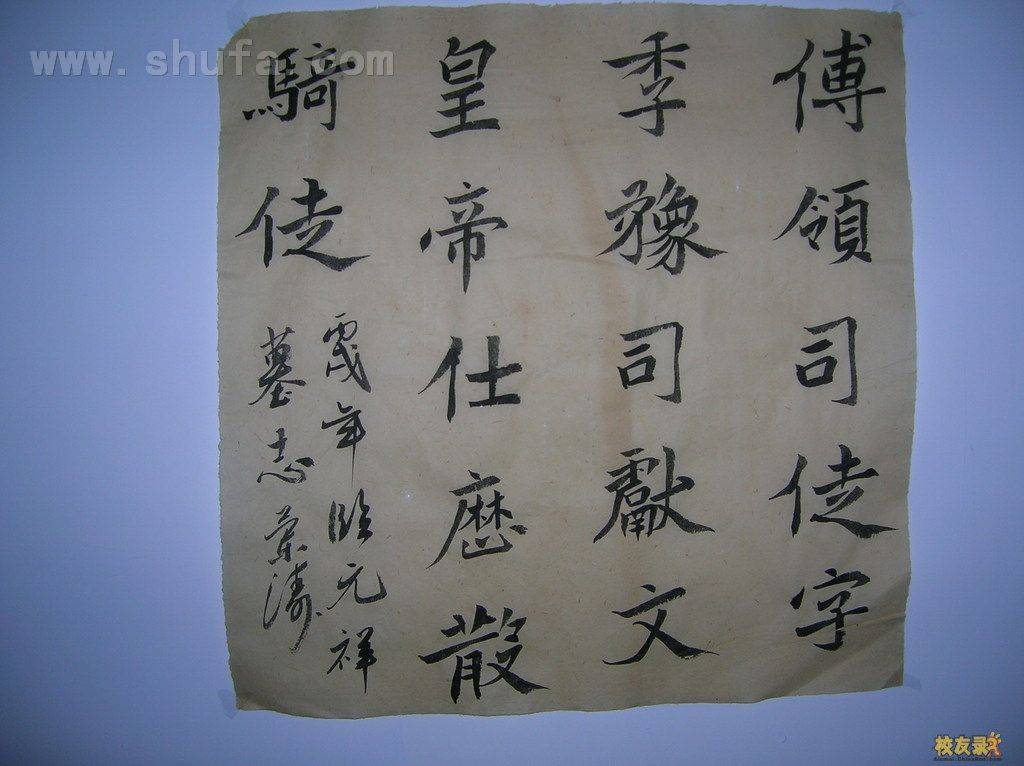 傅領司徒字
季豫司獻文
皇帝仕歷散
騎徒
年臨元祥
墓志
www.shufa.com
校友录
Alumni.ChinaRen.com